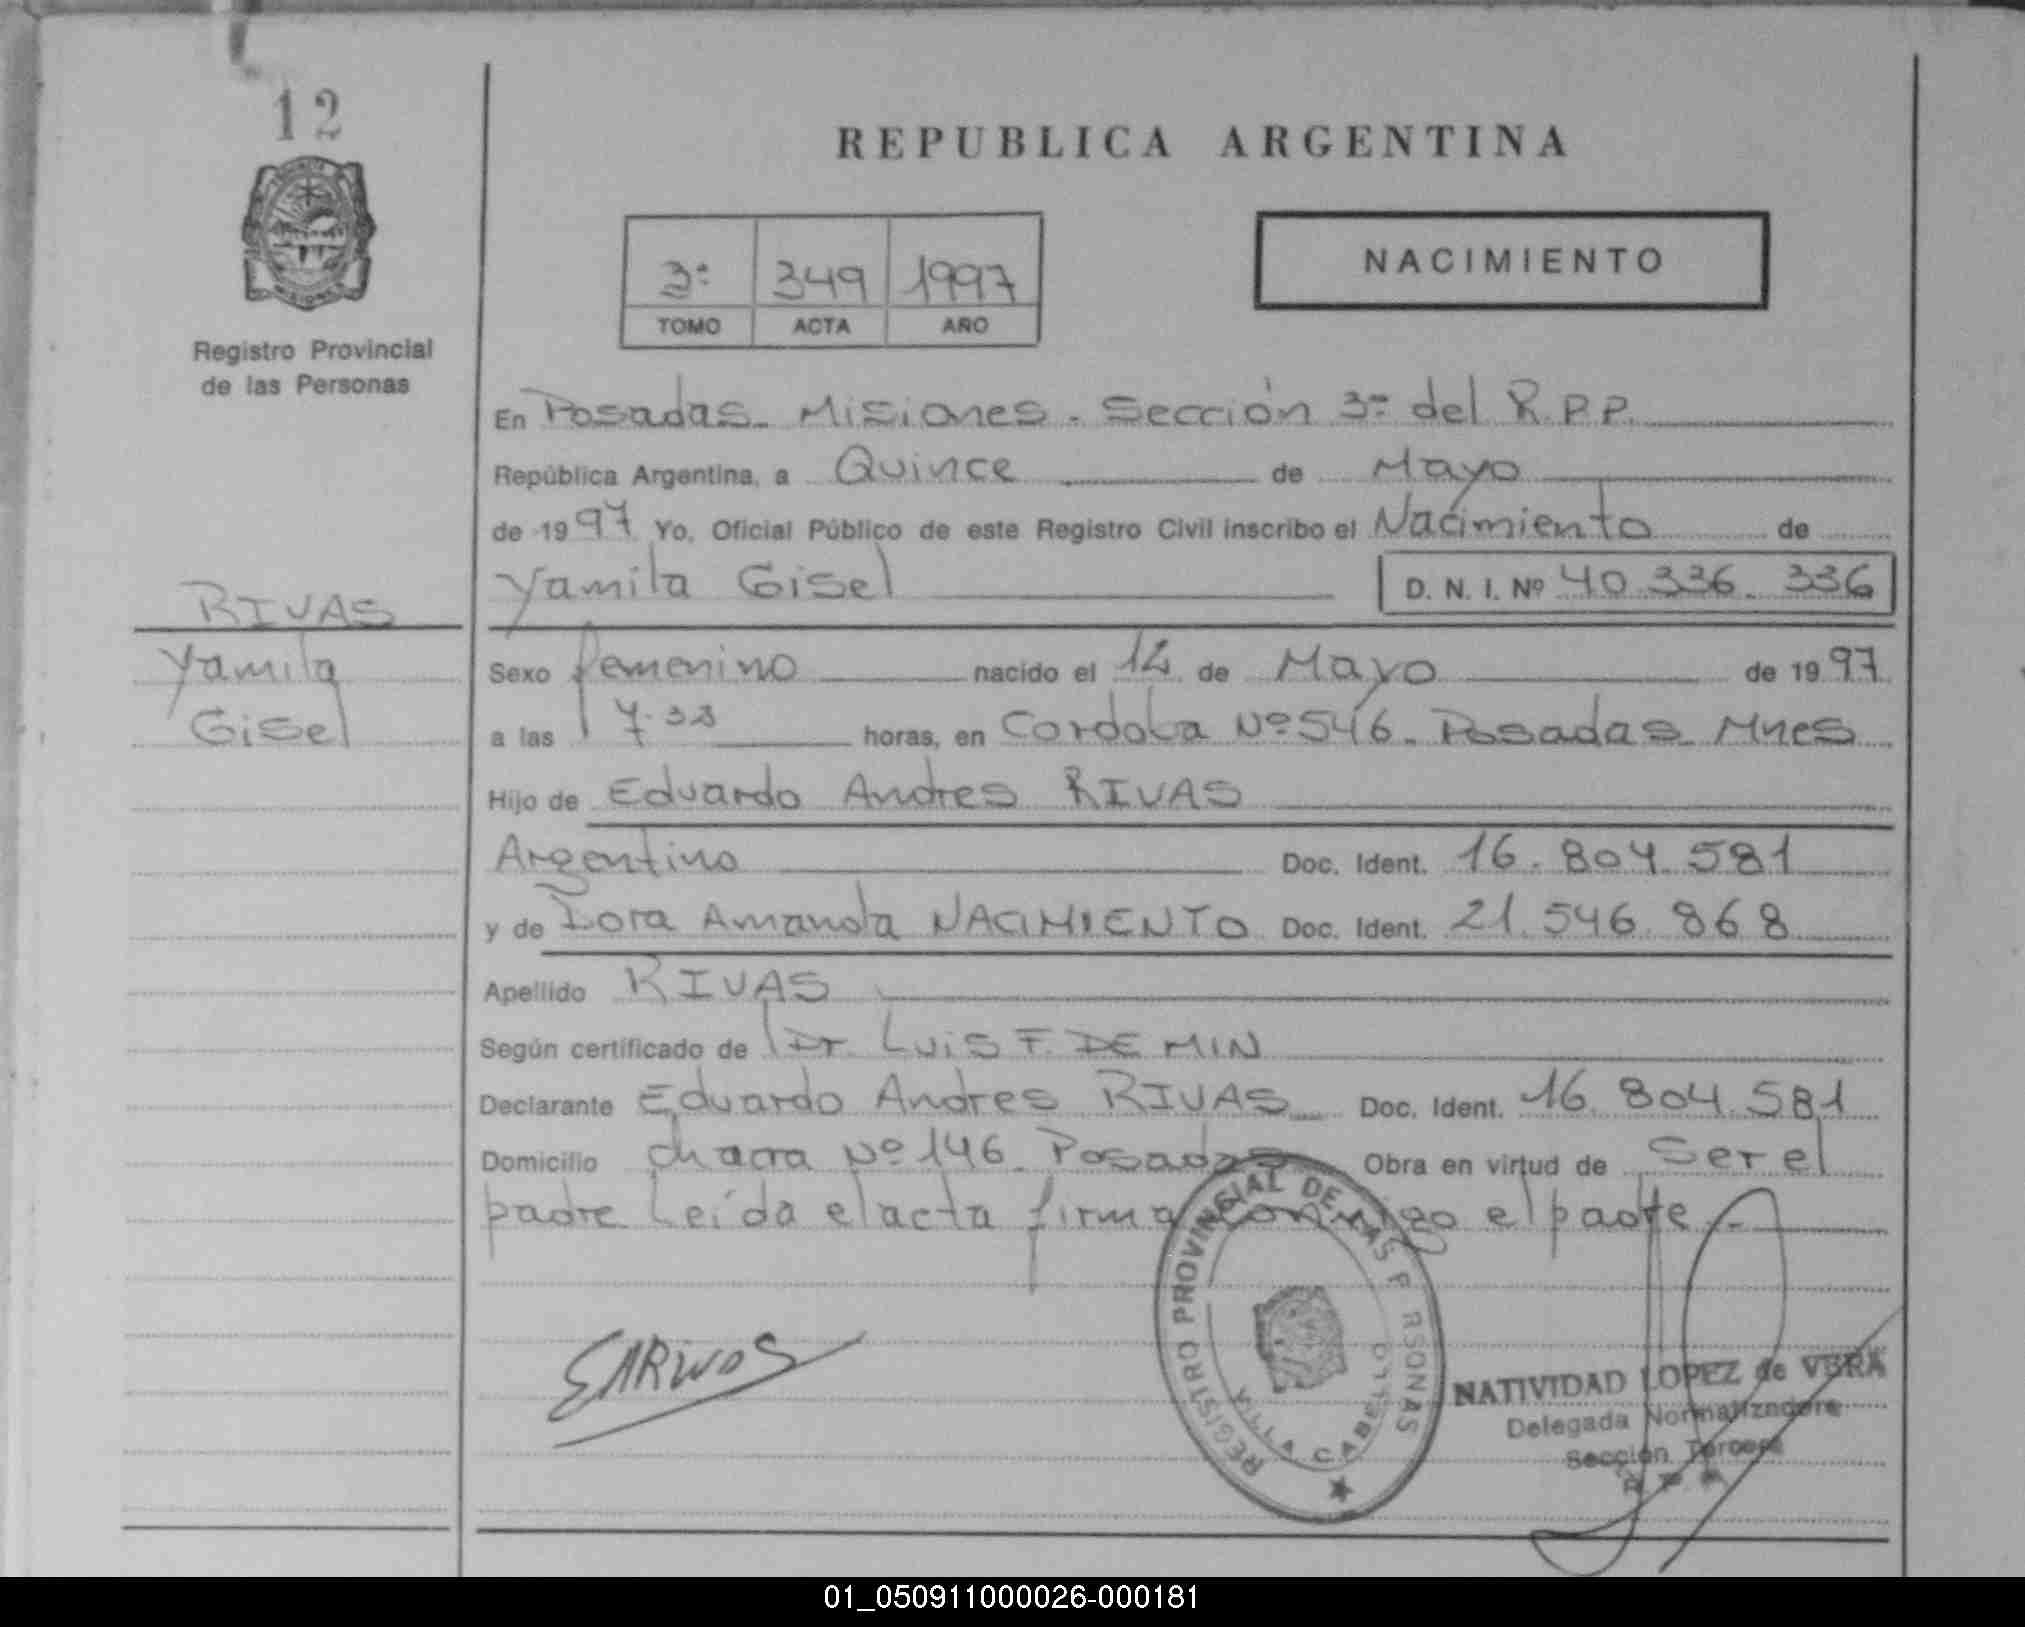 12
REPUBLICA ARGENTINA
3ª 349 1997
TOMO ACTA AÑO
NACIMIENTO
Registro Provincial
de las Personas
En Posadas - Misiones - Sección 3ª del R.P.P.
República Argentina, a Quince de Mayo
de 1997 Yo, Oficial Público de este Registro Civil inscribo el Nacimiento de
Yamila Gisel D. N. I. Nº 40.336.336
RIVAS
Yamila
Gisel
Sexo femenino nacido el 12 de Mayo de 1997
a las horas, en Cordoba Nº 546 - Posadas Mnes
Hijo de Eduardo Andres RIVAS
Argentino Doc. Ident. 16.804.581
y de Dora Amanda NACIMIENTO Doc. Ident. 21.546.868
Apellido RIVAS
Según certificado de Dr. Luis F. DE MIN
Declarante Eduardo Andres RIVAS Doc. Ident. 16.804.581
Domicilio chacra Nº 146 Posadas Obra en virtud de ser el
padre Leída el acta firma conmigo el padre.-
REGISTRO PROVINCIAL DE LAS PERSONAS
VILLA CABELLO
NATIVIDAD LOPEZ de VERA
Delegada Normalizadora
Sección Tercera
01_050911000026-000181